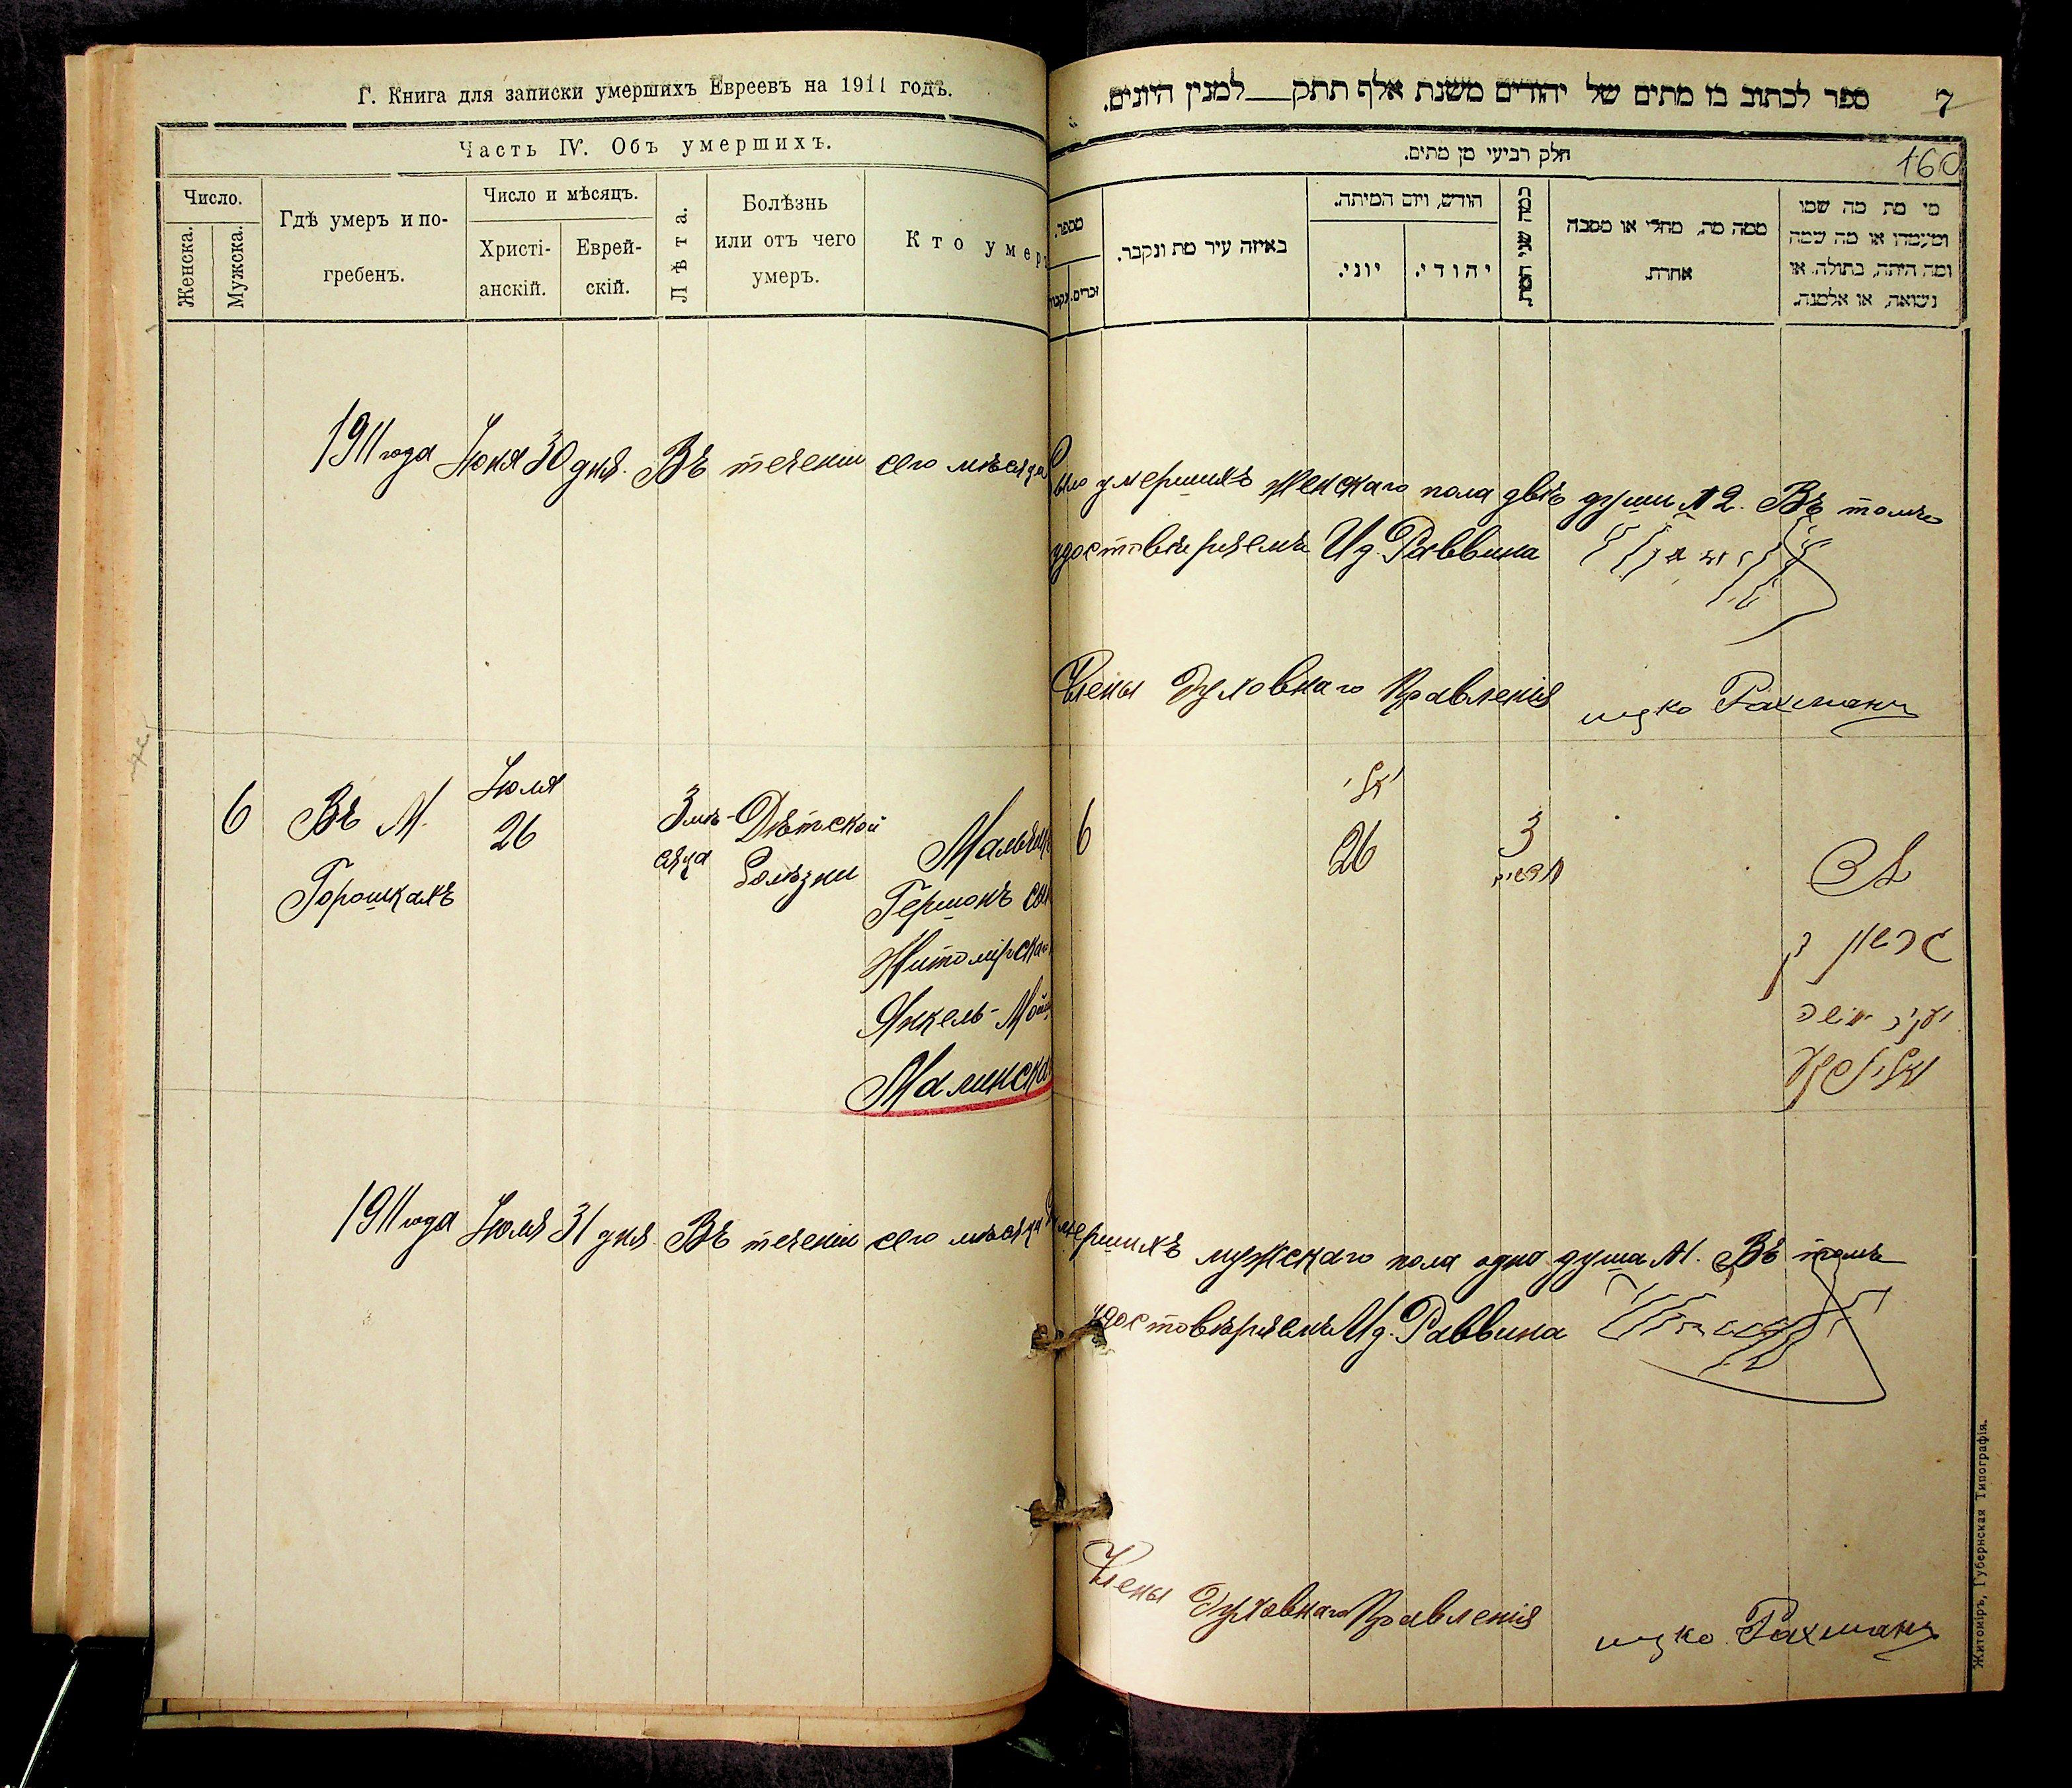 Г. Книга для записки умершихъ Евреевъ на 1911 годъ.
Часть IV. Объ умершихъ.
Число.
Женска.
Мужска.
Гдѣ умеръ и по-
гребенъ.
Число и мѣсяцъ.
Христі-
анскій.
Еврей-
скій.
Лѣта.
Болѣзнь
или отъ чего
умеръ.
Кто умеръ
ספר לכתוב בו מתים של יהודים משנת אלף תתק למנין היונים.
7
160
חלק רביעי מן מתים.
מספר.
נקבות
זכרים.
באיזה עיר מת ונקבר.
חודש, ויום המיתה.
יוני.
יהודי.
כמה שני המת.
ממה מת, מחלי או מסבה
אחרת.
מי מת מה שמו
ומעמדו או מה שמה
ומה היתה, בתולה, או
נשואה, או אלמנה.
1911 года Іюня 30 дня. Въ теченіи сего мѣсяца было умершихъ женскаго пола двѣ души № 2. Въ томъ
удостовѣряемъ И д. Раввина
Члены Духовнаго Правленія ицко Рахманъ
6
Въ М.
Горошкахъ
Іюля
26
3 мѣ-
сяца
Дѣтской
болѣзни
Мальчикъ
Гершонъ сын
Житомірска
Янкель-Мой
Малинска
6
יולי
26
3
חדשים
ילד
גרשון בן
יעקב משה
מאלינסקי
1911 года Іюля 31 дня. Въ теченіи сего мѣсяца умершихъ мужскаго пола одна душа №1. Въ томъ
удостовѣряемъ И д. Раввина
Члены Духовнаго Правленія ицко Рахманъ
Житоміръ, Губернская Типографія.